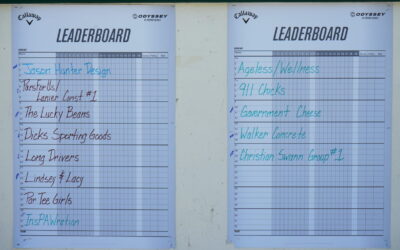 Callaway
ODYSSEY
LEADERBOARD
Jason Hunter Design
ParsforUs/
Lanier Const #1
The Lucky Beans
Dicks Sporting Goods
Long Drivers
Lindsey & Lacy
Par Tee Girls
InsPAWration
Callaway
ODYSSEY
LEADERBOARD
Ageless/Wellness
911 Chicks
Government Cheese
Walker Concrete
Christian Swann Group #1